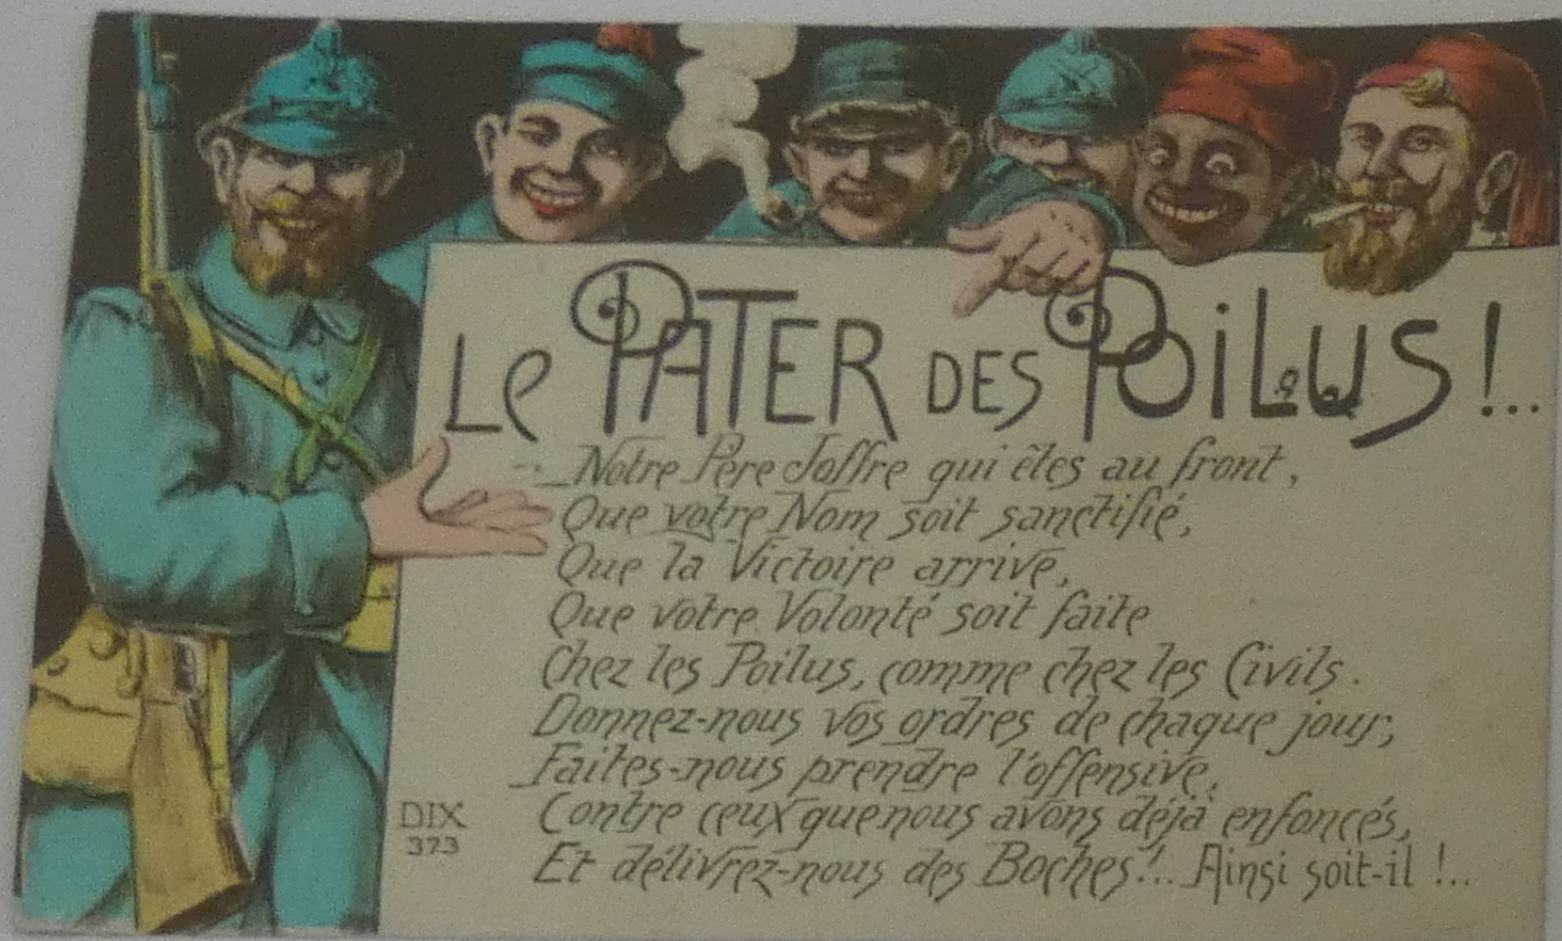 Le PATER DES POiLUS !...
_ Notre Père Joffre qui êtes au front,
Que votre Nom soit sanctifié,
Que la Victoire arrive,
Que votre Volonté soit faite
Chez les Poilus, comme chez les Civils.
Donnez-nous vos ordres de chaque jour;
_ Faites-nous prendre l'offensive,
Contre ceux que nous avons déjà enfoncés,
Et délivrez-nous des Boches !... Ainsi soit-il !...
DIX
373